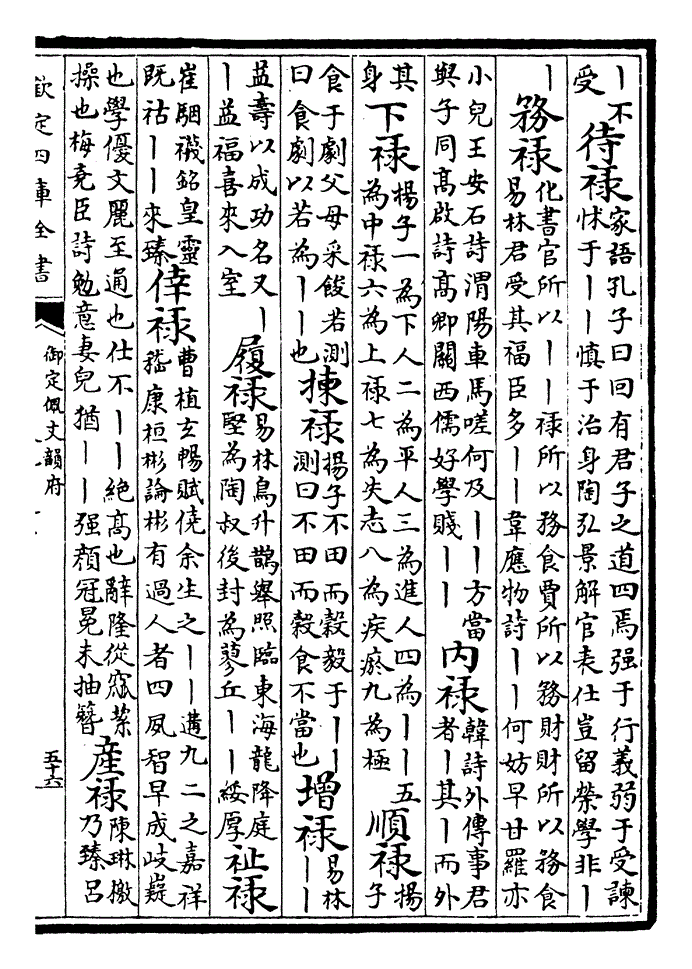 ｜不
受
待祿
家語孔子曰回有君子之道四焉强于行義弱于受諫
怵于｜｜慎于治身陶弘景解官表仕豈留榮學非｜
｜
務祿
化書官所以｜｜祿所以務食賈所以務財財所以務食
易林君受其福臣多｜｜韋應物詩｜｜何妨早甘羅亦
小兒王安石詩渭陽車馬嗟何及｜｜方當
與子同高啟詩高卿關西儒好學賤｜｜
内祿
韓詩外傳事君
者｜其｜而外
其
身
下祿
揚子一為下人二為平人三為進人四為｜｜五
為中祿六為上祿七為失志八為疾瘀九為極
順祿
揚
子
食于劇父母采餕若測
曰食劇以若為｜｜也
揀祿
揚子不田而穀毅于｜｜
測曰不田而穀食不當也
增祿
易林
｜｜
益壽以成功名又｜
｜益福喜來入室
履祿
易林鳥升鵲舉照臨東海龍降庭
堅為陶叔後封為蓼丘｜｜綏厚
祉祿
崔駰襪銘皇靈
既祜｜｜來臻
倖祿
曹植玄暢賦僥余生之｜｜遘九二之嘉祥
嵇康桓彬論彬有過人者四夙智早成岐嶷
也學優文麗至通也仕不｜｜｜絶高也辭隆從窳絜
操也梅堯臣詩勉意妻兒猶｜｜强顔冠冕未抽簪
産祿
陳琳檄
乃臻呂
欽定四庫全書
御定佩文韻府
五十六